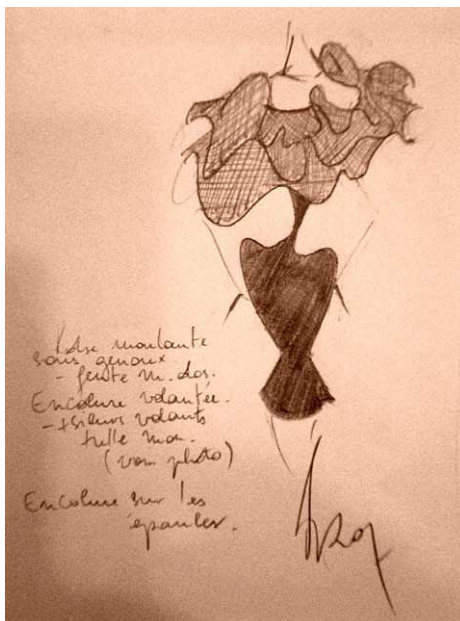 Robe moulante
sous genoux.
- fente m. dos.
Encolure volantée.
- +sieurs volants
tulle
(voir photo)
Encolure sur les
épaules.